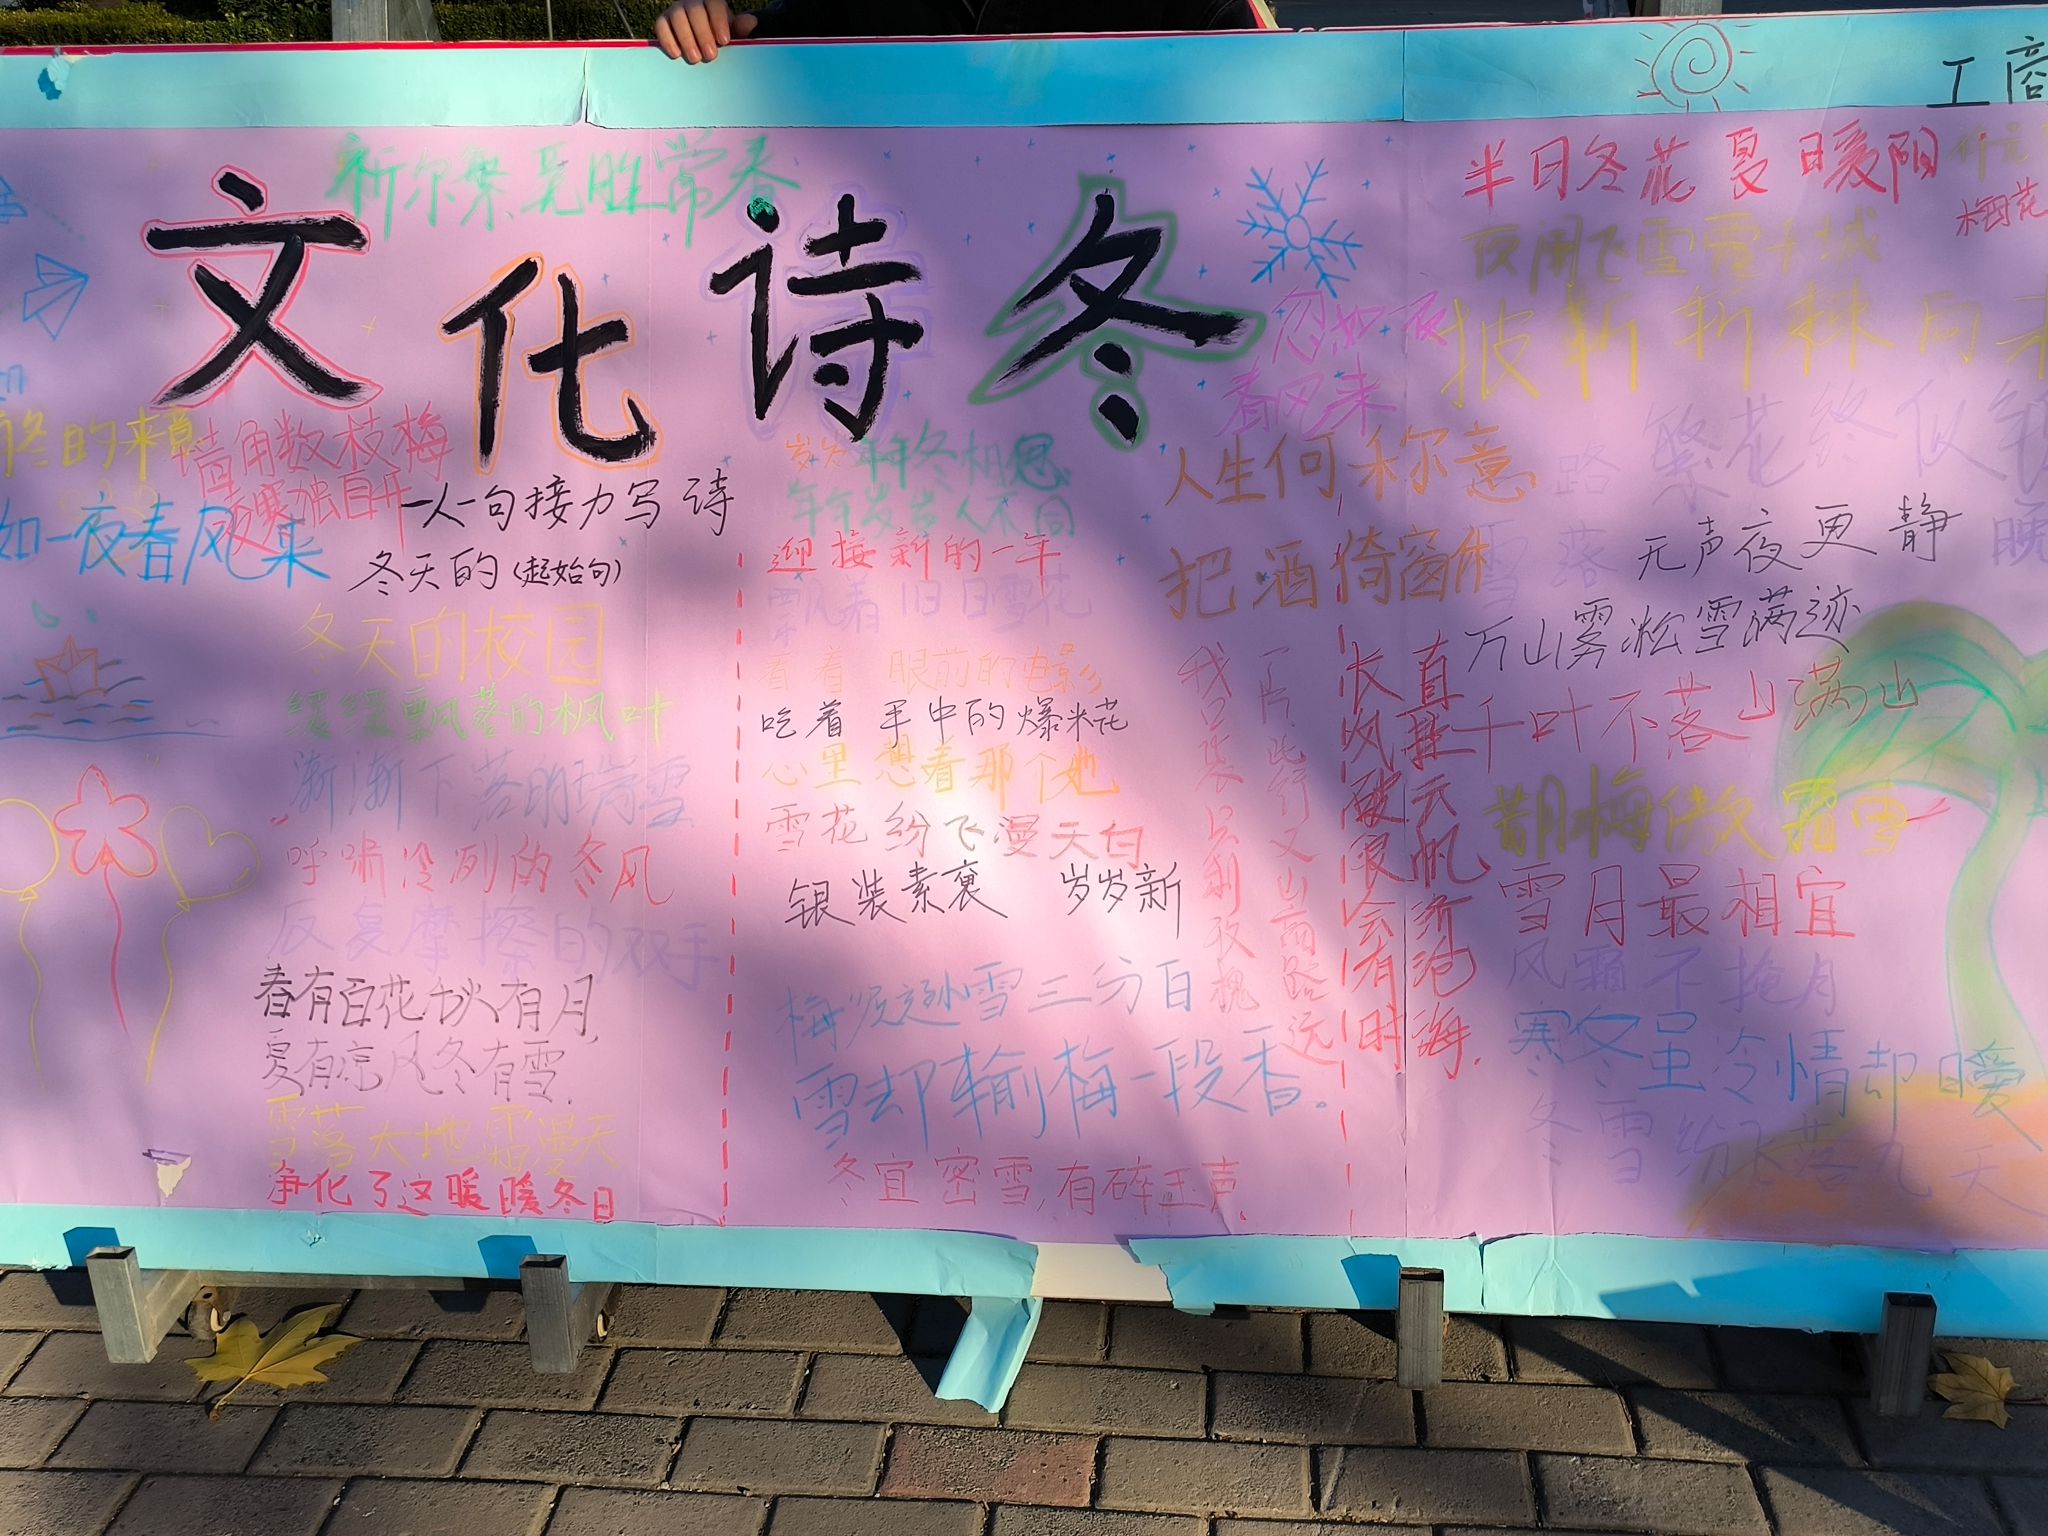 工商
祈尔繁星胜常春
文化诗冬
一人一句接力写诗
冬天的(起始句)
冬的来意
墙角数枝梅
凌寒独自开
如一夜春风来
冬天的校园
缓缓飘落的枫叶
渐渐下落的瑞雪
呼啸冷冽的冬风
反复摩擦的双手
春有百花秋有月,
夏有凉风冬有雪.
雪落大地霜漫天
净化了这暖暖冬日
岁岁年年冬相思
年年岁岁人不同
迎接新的一年
飘着旧日雪花
看着 眼前的电影
吃着 手中的爆米花
心里想着那个她
雪花纷飞漫天白
银装素裹 岁岁新
梅须逊雪三分白
雪却输梅一段香。
冬宜密雪,有碎玉声
忽如一夜
春风来
人生何称意
把酒倚窗休
长风破浪会有时
直挂云帆济沧海.
半日冬花夏日暖阳
梅花
繁花终
雪落
无声夜更静
万山雾凇雪满迹
千叶不落山满山
腊梅傲霜雪
雪月最相宜
风霜不掩月
寒冬虽冷情却暖
冬雪纷飞落九天